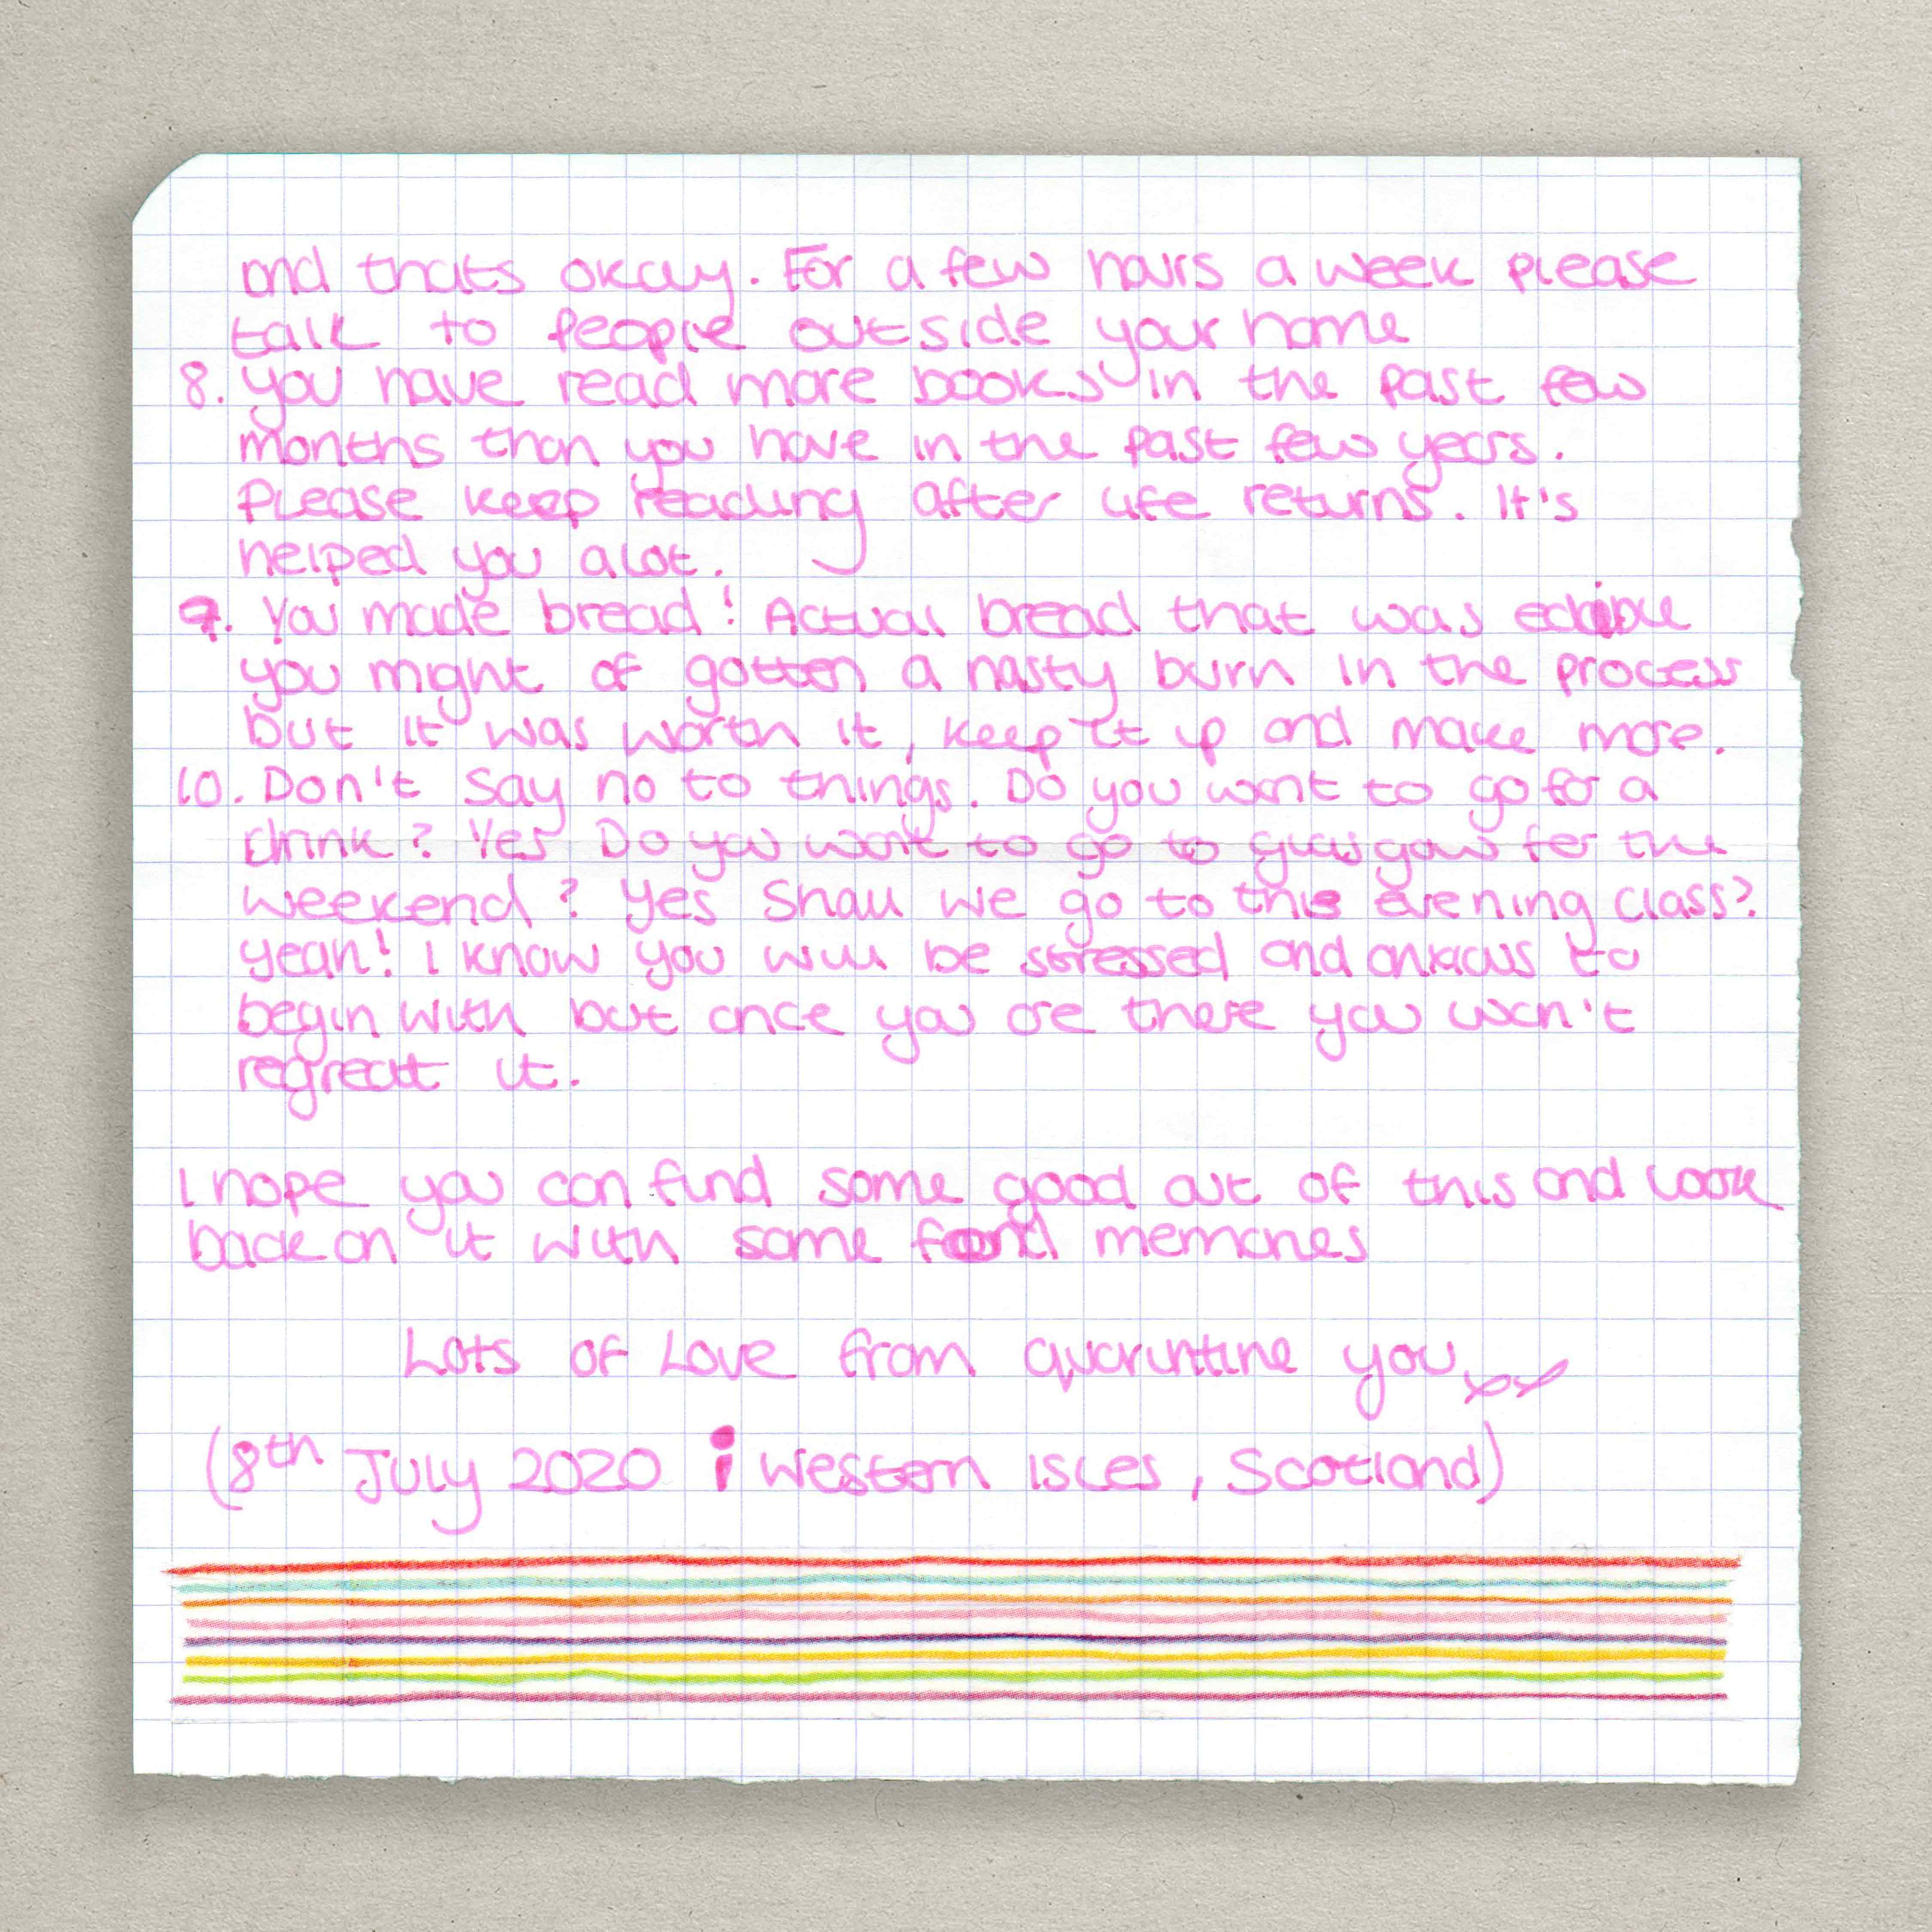 and thats okay. For a few hours a week please
talk to people outside your home
8. you have read more books in the past few
months than you have in the past few years.
Please keep reading after life returns. It's
helped you alot.
9. You made bread! Actual bread that was edible
you might of gotten a nasty burn in the process
but it was worth it, keep it up and make more.
10. Don't say no to things. Do you want to go for a
drink? Yes Do you want to go to glasgow for the
weekend? Yes Shall we go to this evening class?
yeah! I know you will be stressed and anxious to
begin with but once you are there you won't
regreat it.
I hope you can find some good out of this and look
back on it with some fond memories
Lots of Love from quaruntine you xx
(8th July 2020 Western Isles, Scotland)